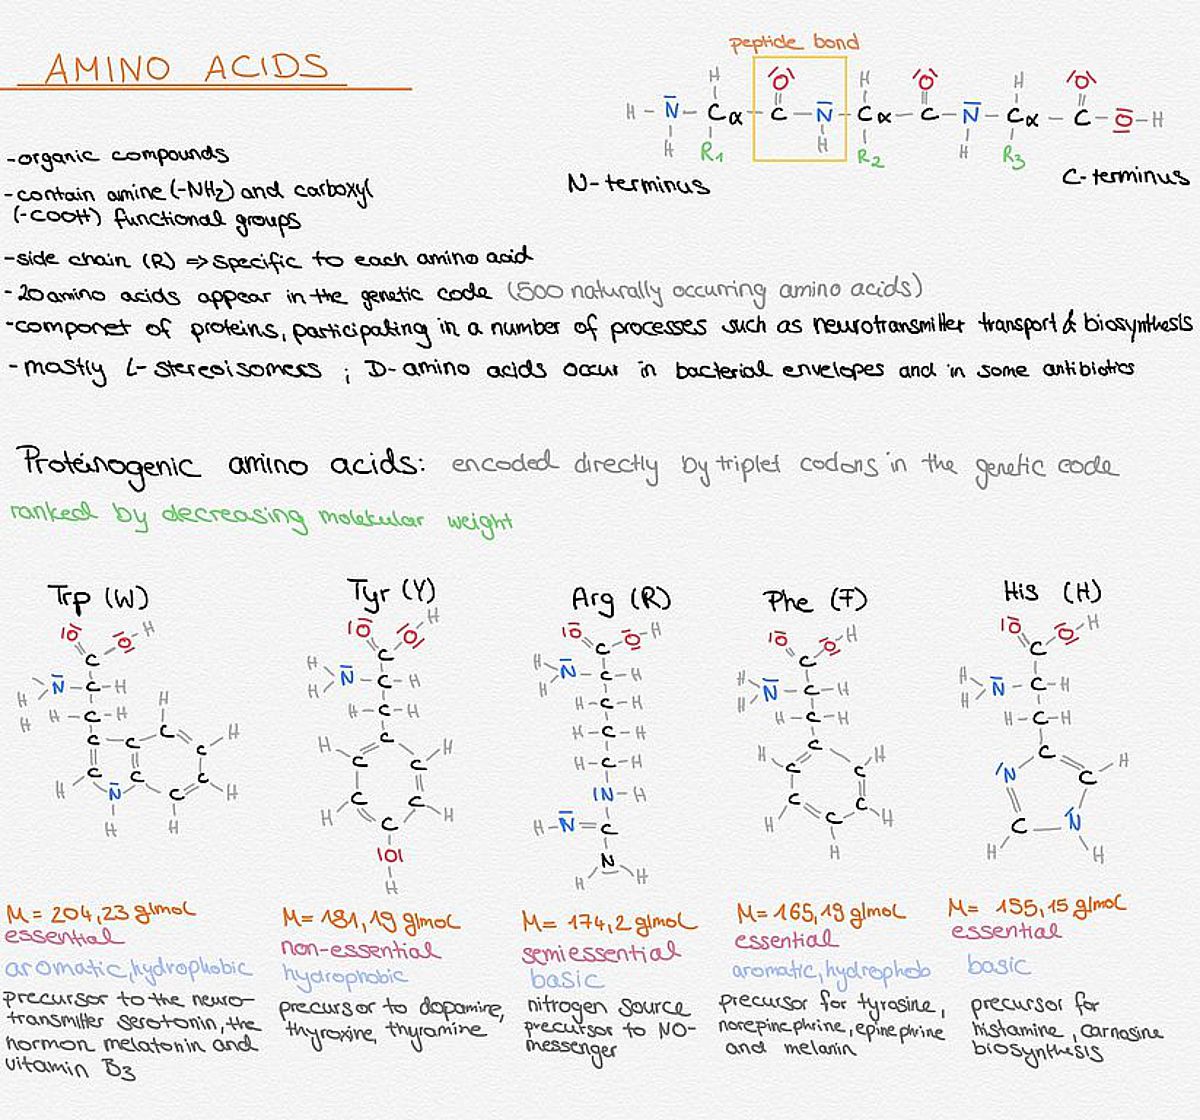 AMINO ACIDS
peptide bond
N-terminus
C-terminus
-organic compounds
-contain amine (-NH2) and carboxyl
(-COOH) functional groups
-side chain (R) => specific to each amino acid
-20 amino acids appear in the genetic code (500 naturally occurring amino acids)
-componet of proteins, participating in a number of processes such as neurotransmitter transport & biosynthesis
-mostly L-stereoisomers ; D-amino acids occur in bacterial envelopes and in some antibiotics
Proteinogenic amino acids: encoded directly by triplet codons in the genetic code
ranked by decreasing molekular weight
Trp (W)
M = 204,23 g/mol
essential
aromatic, hydrophobic
precursor to the neuro-
transmitter serotonin, the
hormon melatonin and
vitamin B3
Tyr (Y)
M = 181,19 g/mol
non-essential
hydrophobic
precursor to dopamine,
thyroxine, thyramine
Arg (R)
M = 174,2 g/mol
semiessential
basic
nitrogen source
precursor to NO-
messenger
Phe (F)
M = 165,19 g/mol
essential
aromatic, hydrophob
precursor for tyrosine,
norepinephrine, epinephrine
and melanin
His (H)
M = 155,15 g/mol
essential
basic
precursor for
histamine, carnosine
biosynthesis